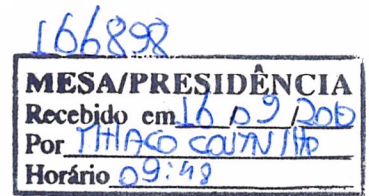 166898
MESA/PRESIDÊNCIA
Recebido em 16 / 09 /
Por THIAGO COUTINHO
Horário 09:48